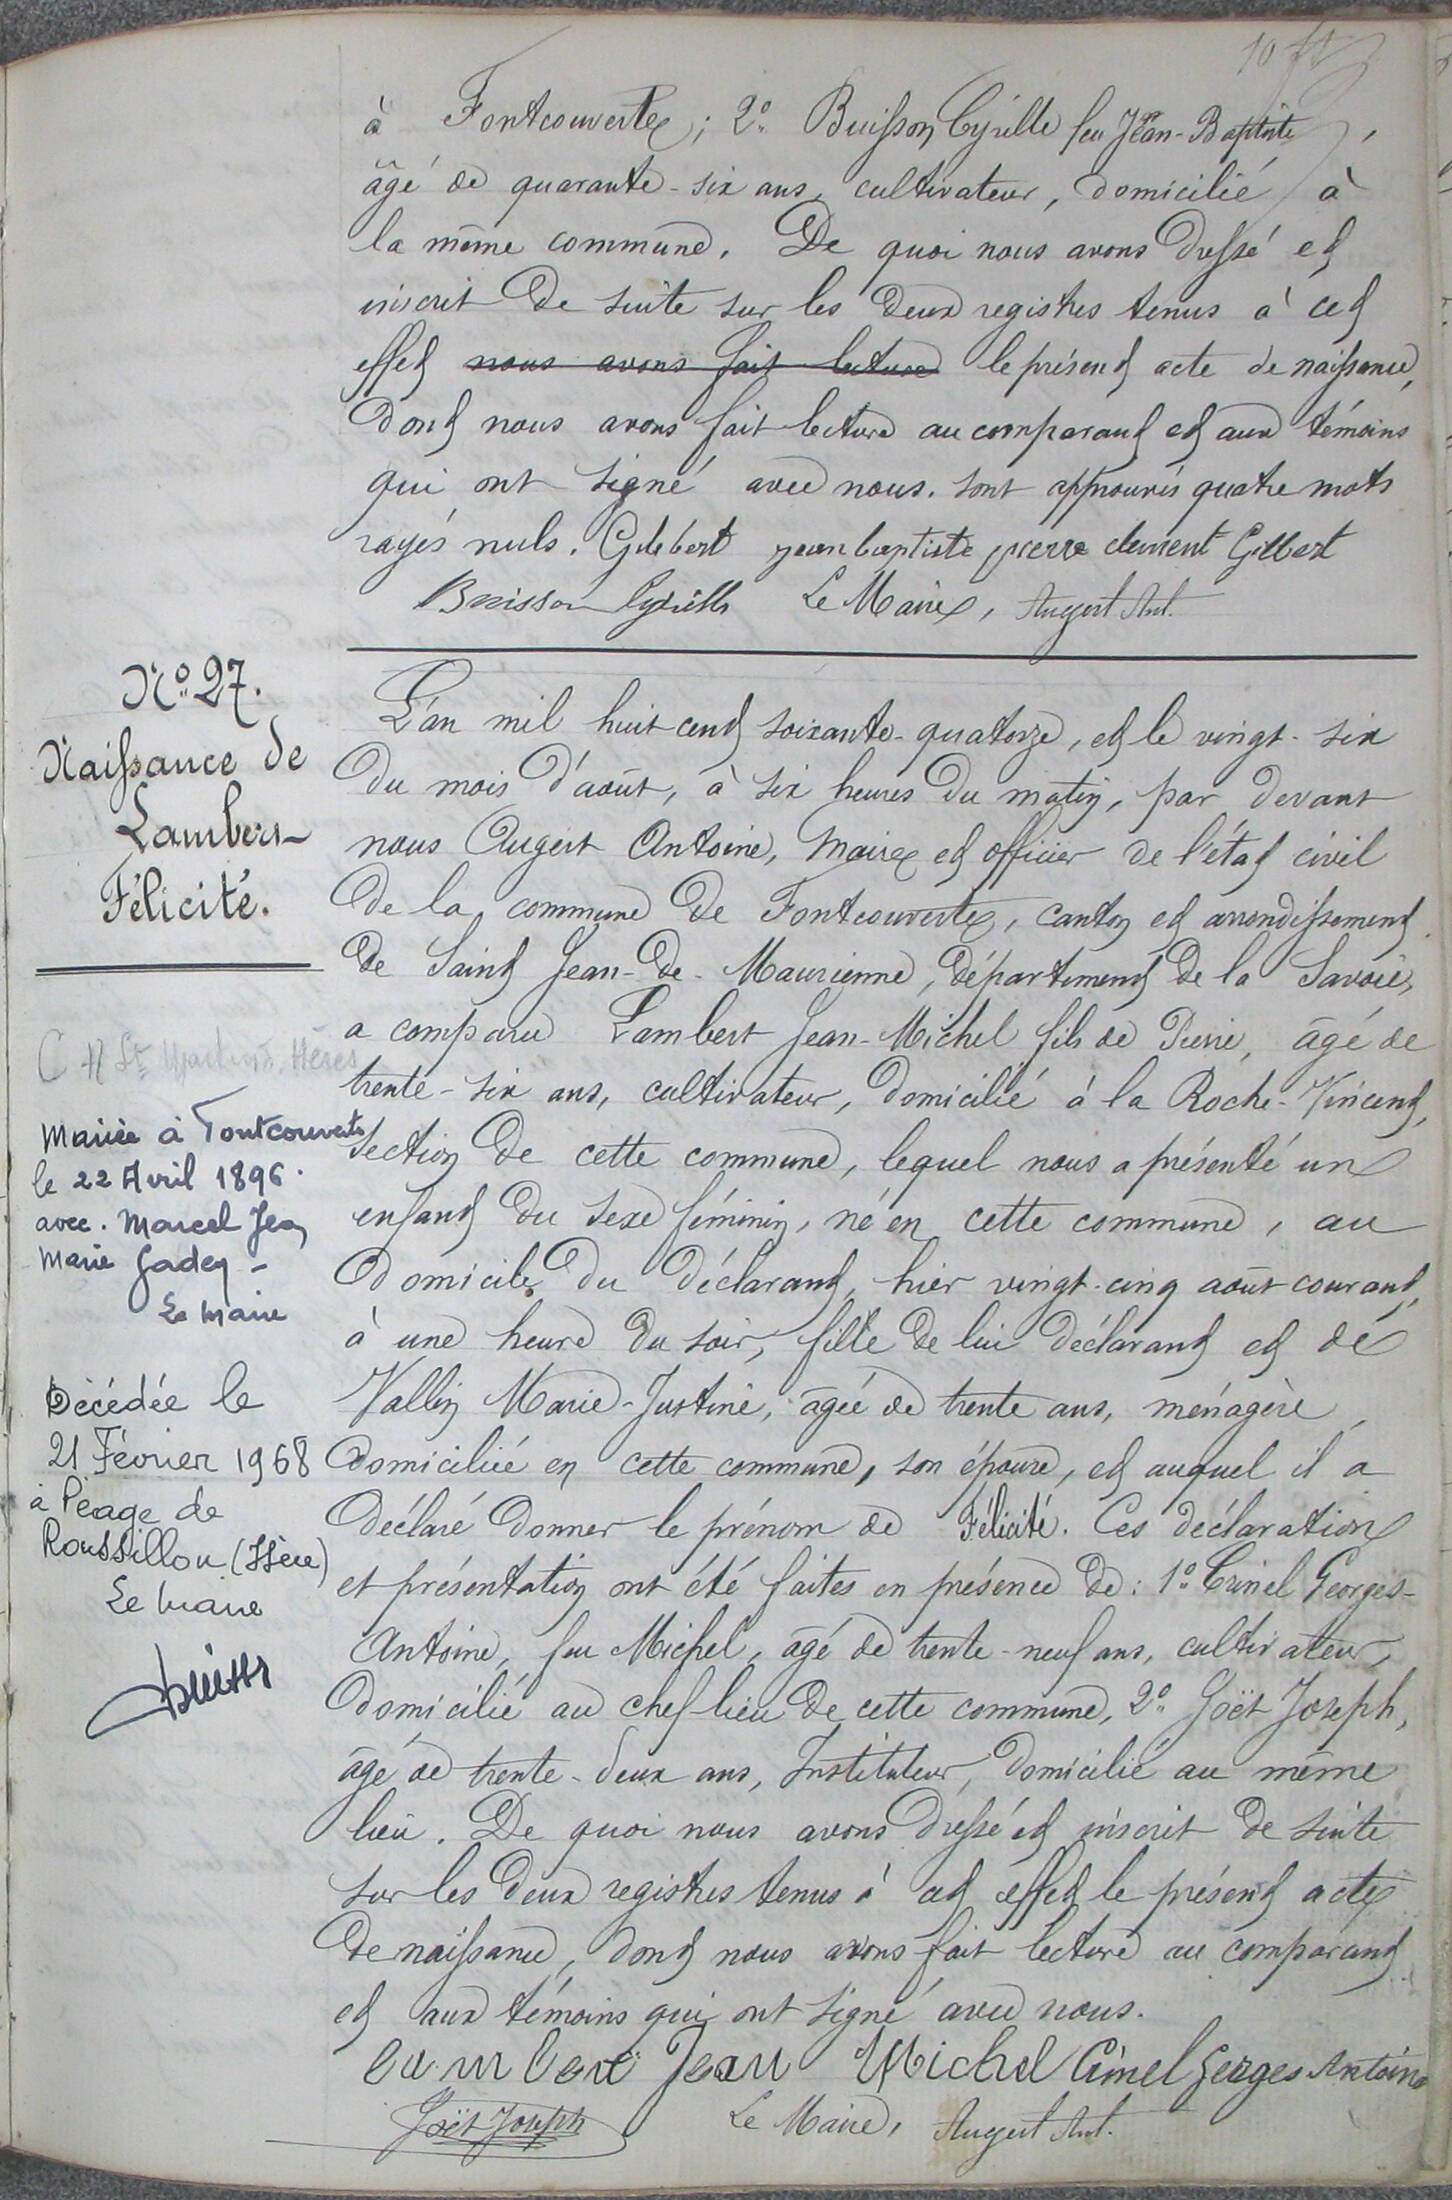 à Fontcouverte; 2° Buisson Cyrille feu Jean-Baptiste,
âgé de quarante-six ans, cultivateur, domicilié à
la même commune. De quoi nous avons dressé et
inscrit de suite sur les deux registres tenus à cet
effet nous avons fait lecture le présent acte de naissance,
dont nous avons fait lecture au comparant et aux témoins
qui ont signé avec nous. sont approuvés quatre mots
rayés nuls. Gilbert jean baptiste pierre clement Gilbert
Buisson Cyrille Le Maire, Augert Ant.
N° 27.
Naissance de
Lambert
Félicité.
L'an mil huit cent soixante-quatorze, et le vingt-six
du mois d'août, à six heures du matin, par devant
nous Augert Antoine, Maire et officier de l'état civil
de la commune de Fontcouverte, canton et arrondissement
de Saint Jean-de-Maurienne, département de la Savoie,
a comparu Lambert Jean-Michel fils de Pierre, âgé de
trente-six ans, cultivateur, domicilié à la Roche-Vincent,
section de cette commune, lequel nous a présenté un
enfant du sexe féminin, né en cette commune, au
domicile du déclarant, hier vingt-cinq août courant,
à une heure du soir, fille de lui déclarant et de
Vallin Marie-Justine, âgée de trente ans, ménagère,
domiciliée en cette commune, son épouse, et auquel il a
déclaré donner le prénom de Félicité. Ces déclaration
et présentation ont été faites en présence de: 1° Crinel Georges-
Antoine, feu Michel, âgé de trente-neuf ans, cultivateur,
domicilié au chef-lieu de cette commune, 2° Goët Joseph,
âgé de trente-deux ans, Instituteur, domicilié au même
lieu. De quoi nous avons dressé et inscrit de suite
sur les deux registres tenus à cet effet le présent acte
de naissance, dont nous avons fait lecture au comparant
et aux témoins qui ont signé avec nous.
Lambert Jean Michel Crinel Georges Antoine
Goët Joseph Le Maire, Augert Ant.
St Martin d'Hères
Mariée à Fontcouverte
le 22 Avril 1896.
avec. Marcel Jean
Marie Gaden -
Le Maire
Décédée le
21 Février 1968
à Péage de
Roussillon (Isère)
Le Maire